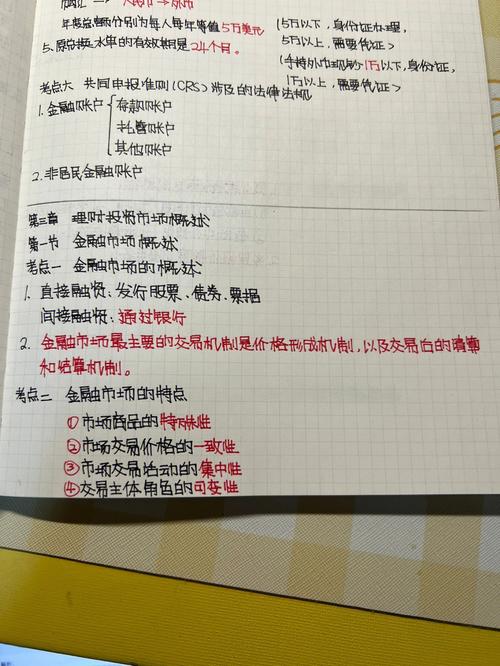 购汇 —> 人民币→外币
年度总额分别为每人每年等值5万美元 (5万以下,身份证办理,
5万以上,需要凭证>
5、原总换汇水单的有效期是24个月。 (手持外币现钞1万以下,身份证,
1万以上,需要凭证>
考点六 共同申报准则(CRS)涉及的法律法规
1.金融账户 { 存款账户
托管账户
其他账户
2.非居民金融账户
第三章 理财投资市场概述
第一节 金融市场概述
考点一 金融市场的概述
1. 直接融资:发行股票、债券、票据
间接融资:通过银行
2. 金融市场最主要的交易机制是价格形成机制,以及交易后的清算
和结算机制。
考点二 金融市场的特点
①市场商品的特殊性
②市场交易价格的一致性
③市场交易活动的集中性
④交易主体角色的可变性